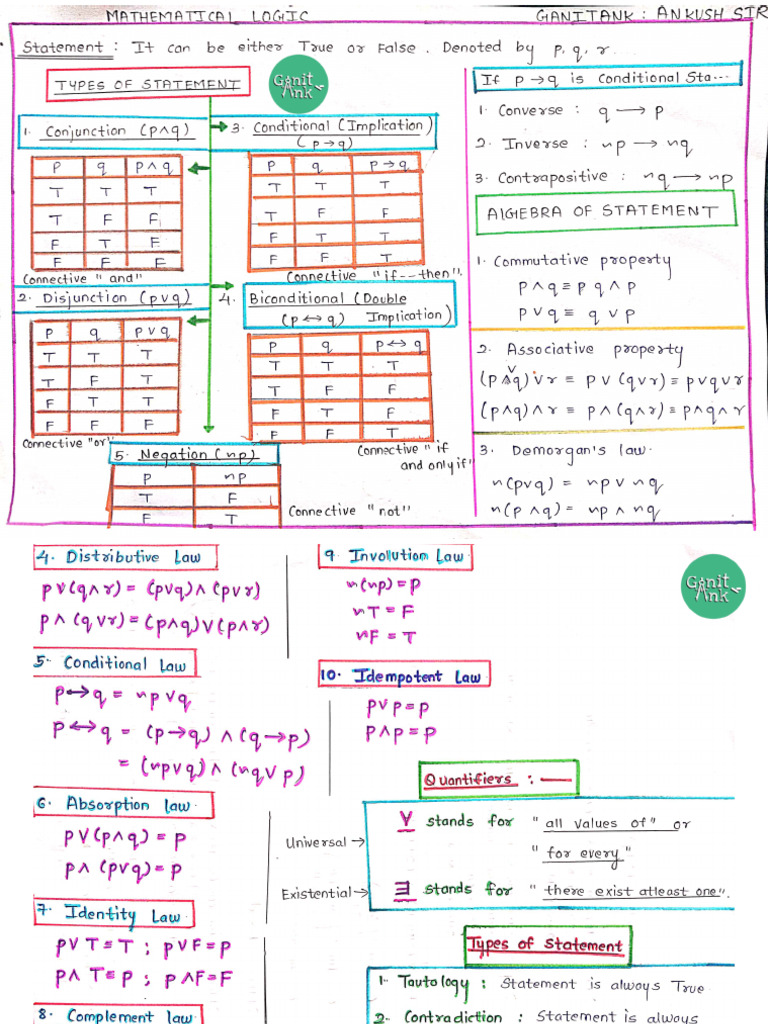 MATHEMATICAL LOGIC
GANITANK : ANKUSH SIR
Statement : It can be either True or False. Denoted by p, q, r....
TYPES OF STATEMENT
Ganit Ank
1. Conjunction (p∧q)
p q p∧q
T T T
T F F
F T F
F F F
Connective "and"
2. Disjunction (p∨q)
p q p∨q
T T T
T F T
F T T
F F F
Connective "or"
3. Conditional (Implication)
(p→q)
p q p→q
T T T
T F F
F T T
F F T
Connective "if--then".
4. Biconditional (Double
(p↔q) Implication)
p q p↔q
T T T
T F F
F T F
F F T
Connective "if
and only if"
5. Negation (~p)
p ~p
T F
F T
Connective "not"
If p→q is Conditional Sta...
1. Converse : q → p
2. Inverse : ~p → ~q
3. Contrapositive : ~q → ~p
ALGEBRA OF STATEMENT
1. Commutative property
p∧q ≡ p q∧p
p∨q ≡ q∨p
2. Associative property
(p∨q)∨r ≡ p∨(q∨r) ≡ p∨q∨r
(p∧q)∧r ≡ p∧(q∧r) ≡ p∧q∧r
3. Demorgan's law.
~(p∨q) = ~p∨~q
~(p∧q) = ~p∧~q
4. Distributive Law
p∨(q∧r) = (p∨q)∧(p∨r)
p∧(q∨r) = (p∧q)∨(p∧r)
5. Conditional Law
p↔q = ~p∨q
p↔q = (p→q)∧(q→p)
= (~p∨q)∧(~q∨p)
6. Absorption law.
p∨(p∧q) = p
p∧(p∨q) = p
7. Identity Law.
p∨T ≡ T ; p∨F = p
p∧T ≡ p ; p∧F = F
8. Complement law.
9. Involution Law.
~(~p) = p
~T = F
~F = T
10. Idempotent Law.
p∨p = p
p∧p = p
Ganit Ank
Quantifiers : —
Universal → ∀ stands for "all values of" or
"for every"
Existential → ∃ stands for "there exist atleast one".
Types of Statement
1. Tautology : Statement is always True
2. Contradiction : Statement is always